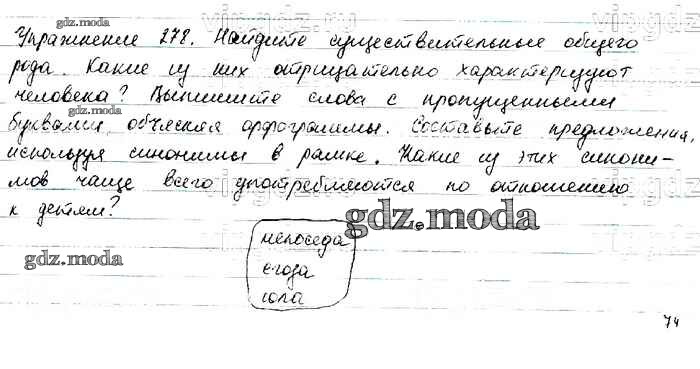 gdz.moda
Упражнение 278. Найдите существительные общего
gdz.moda
рода. Какие из них отрицательно характеризуют
человека? Выпишите слова с пропущенными
буквами, объясняя орфограммы. Составьте предложения,
используя синонимы в рамке. Какие из этих синони-
мов чаще всего употребляются по отношению
к детям?
gdz.moda
непоседа
gdz.moda
егоза
юла
74